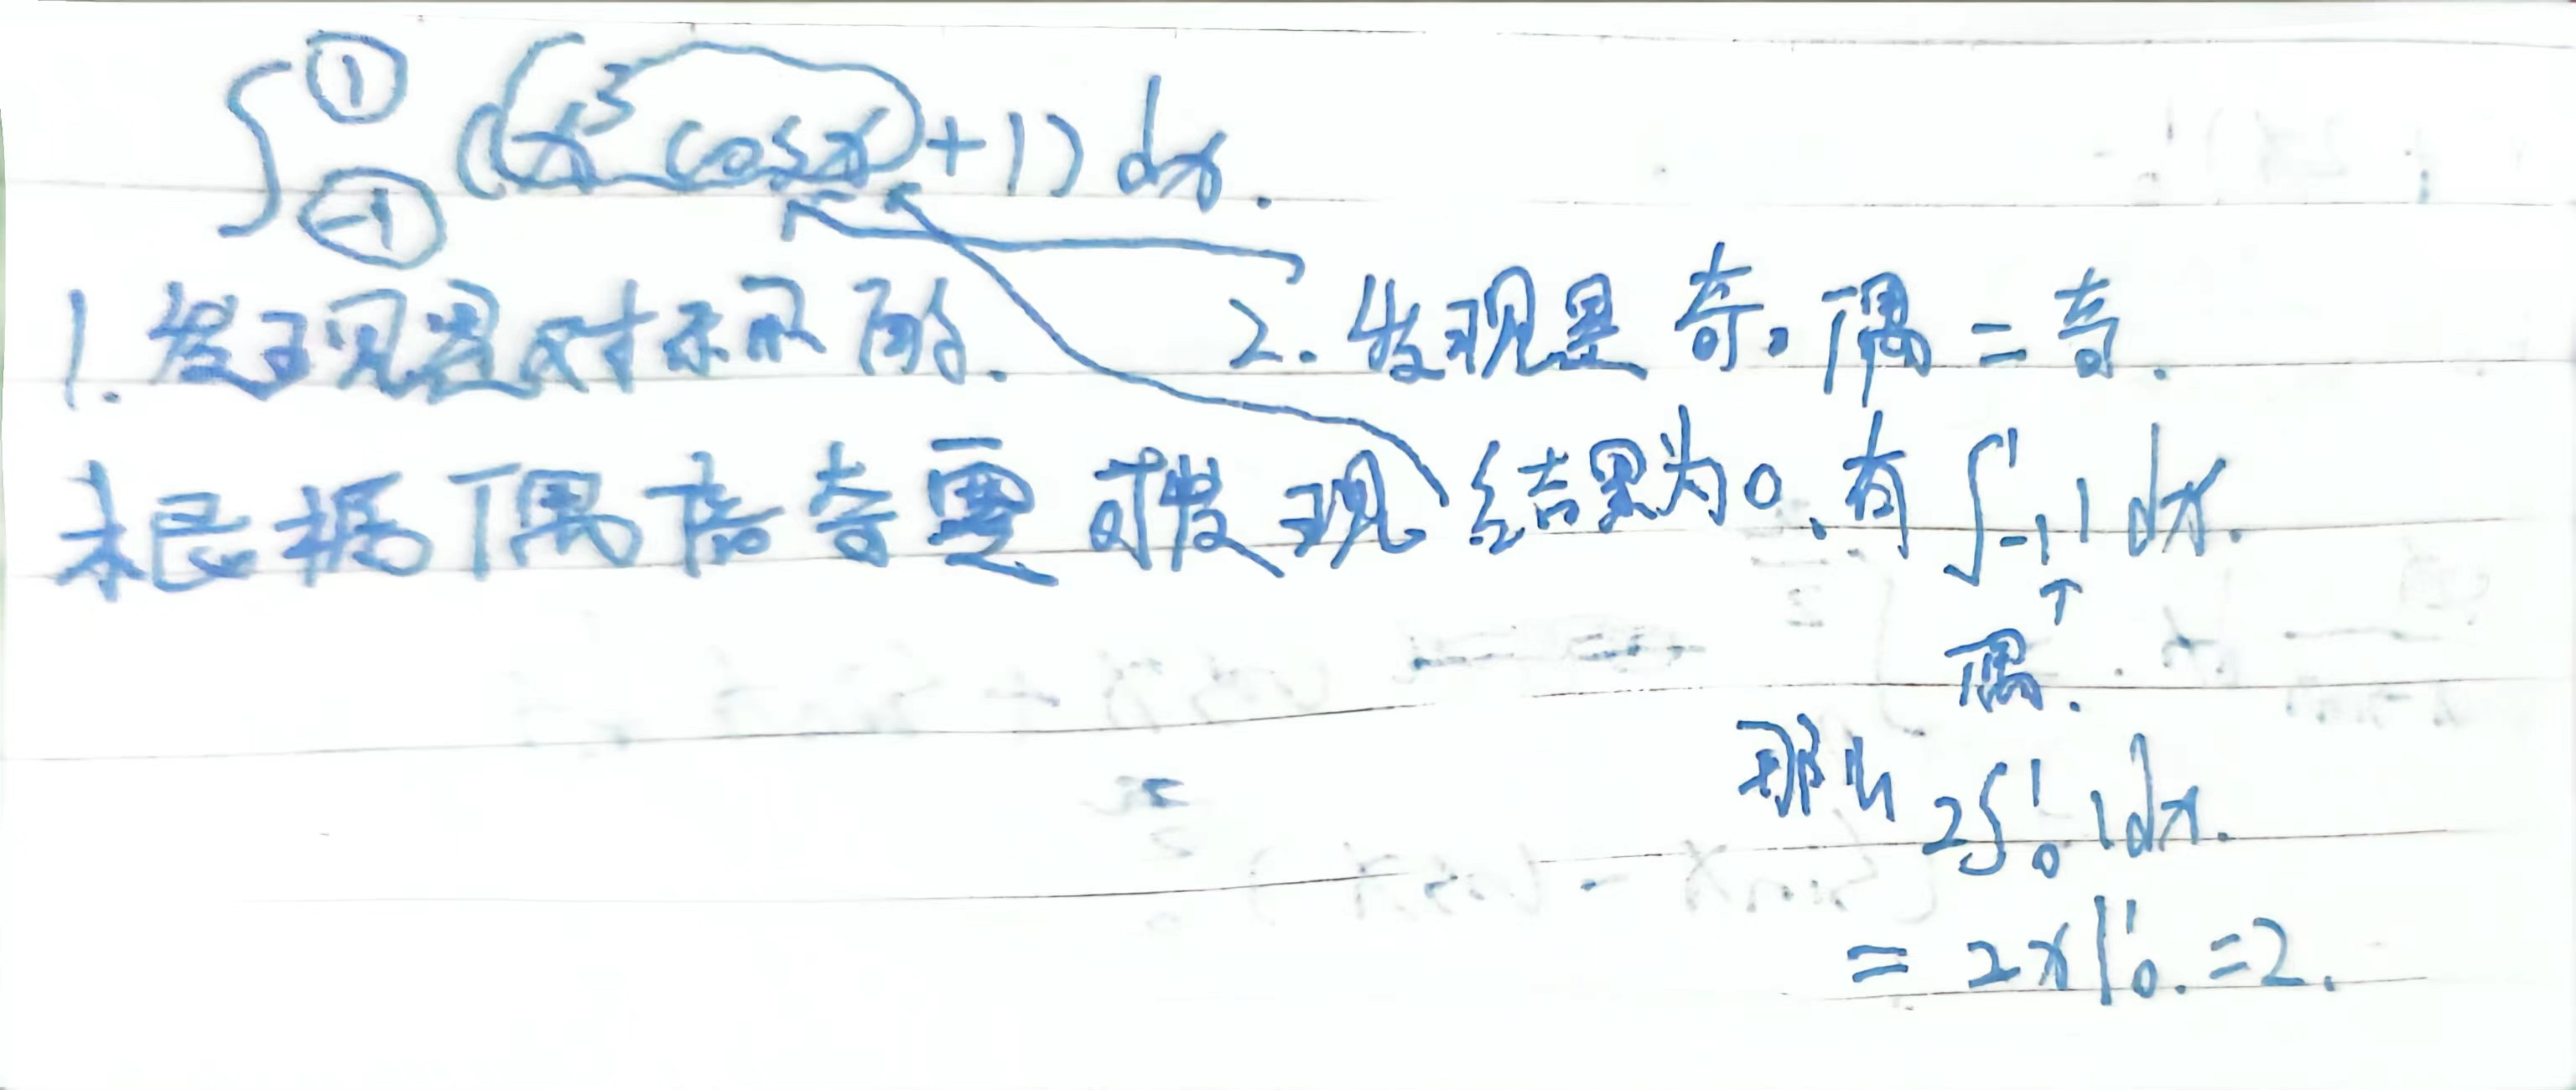 ∫₋₁¹ (x³cosx+1) dx.
1. 发现是对称的.
2. 发现是奇。偶=奇.
根据偶倍奇零可发现
结果为0、有 ∫₋₁¹ 1 dx.
↑
偶.
那么 2∫₀¹ 1dx.
= 2x|₀¹. =2.